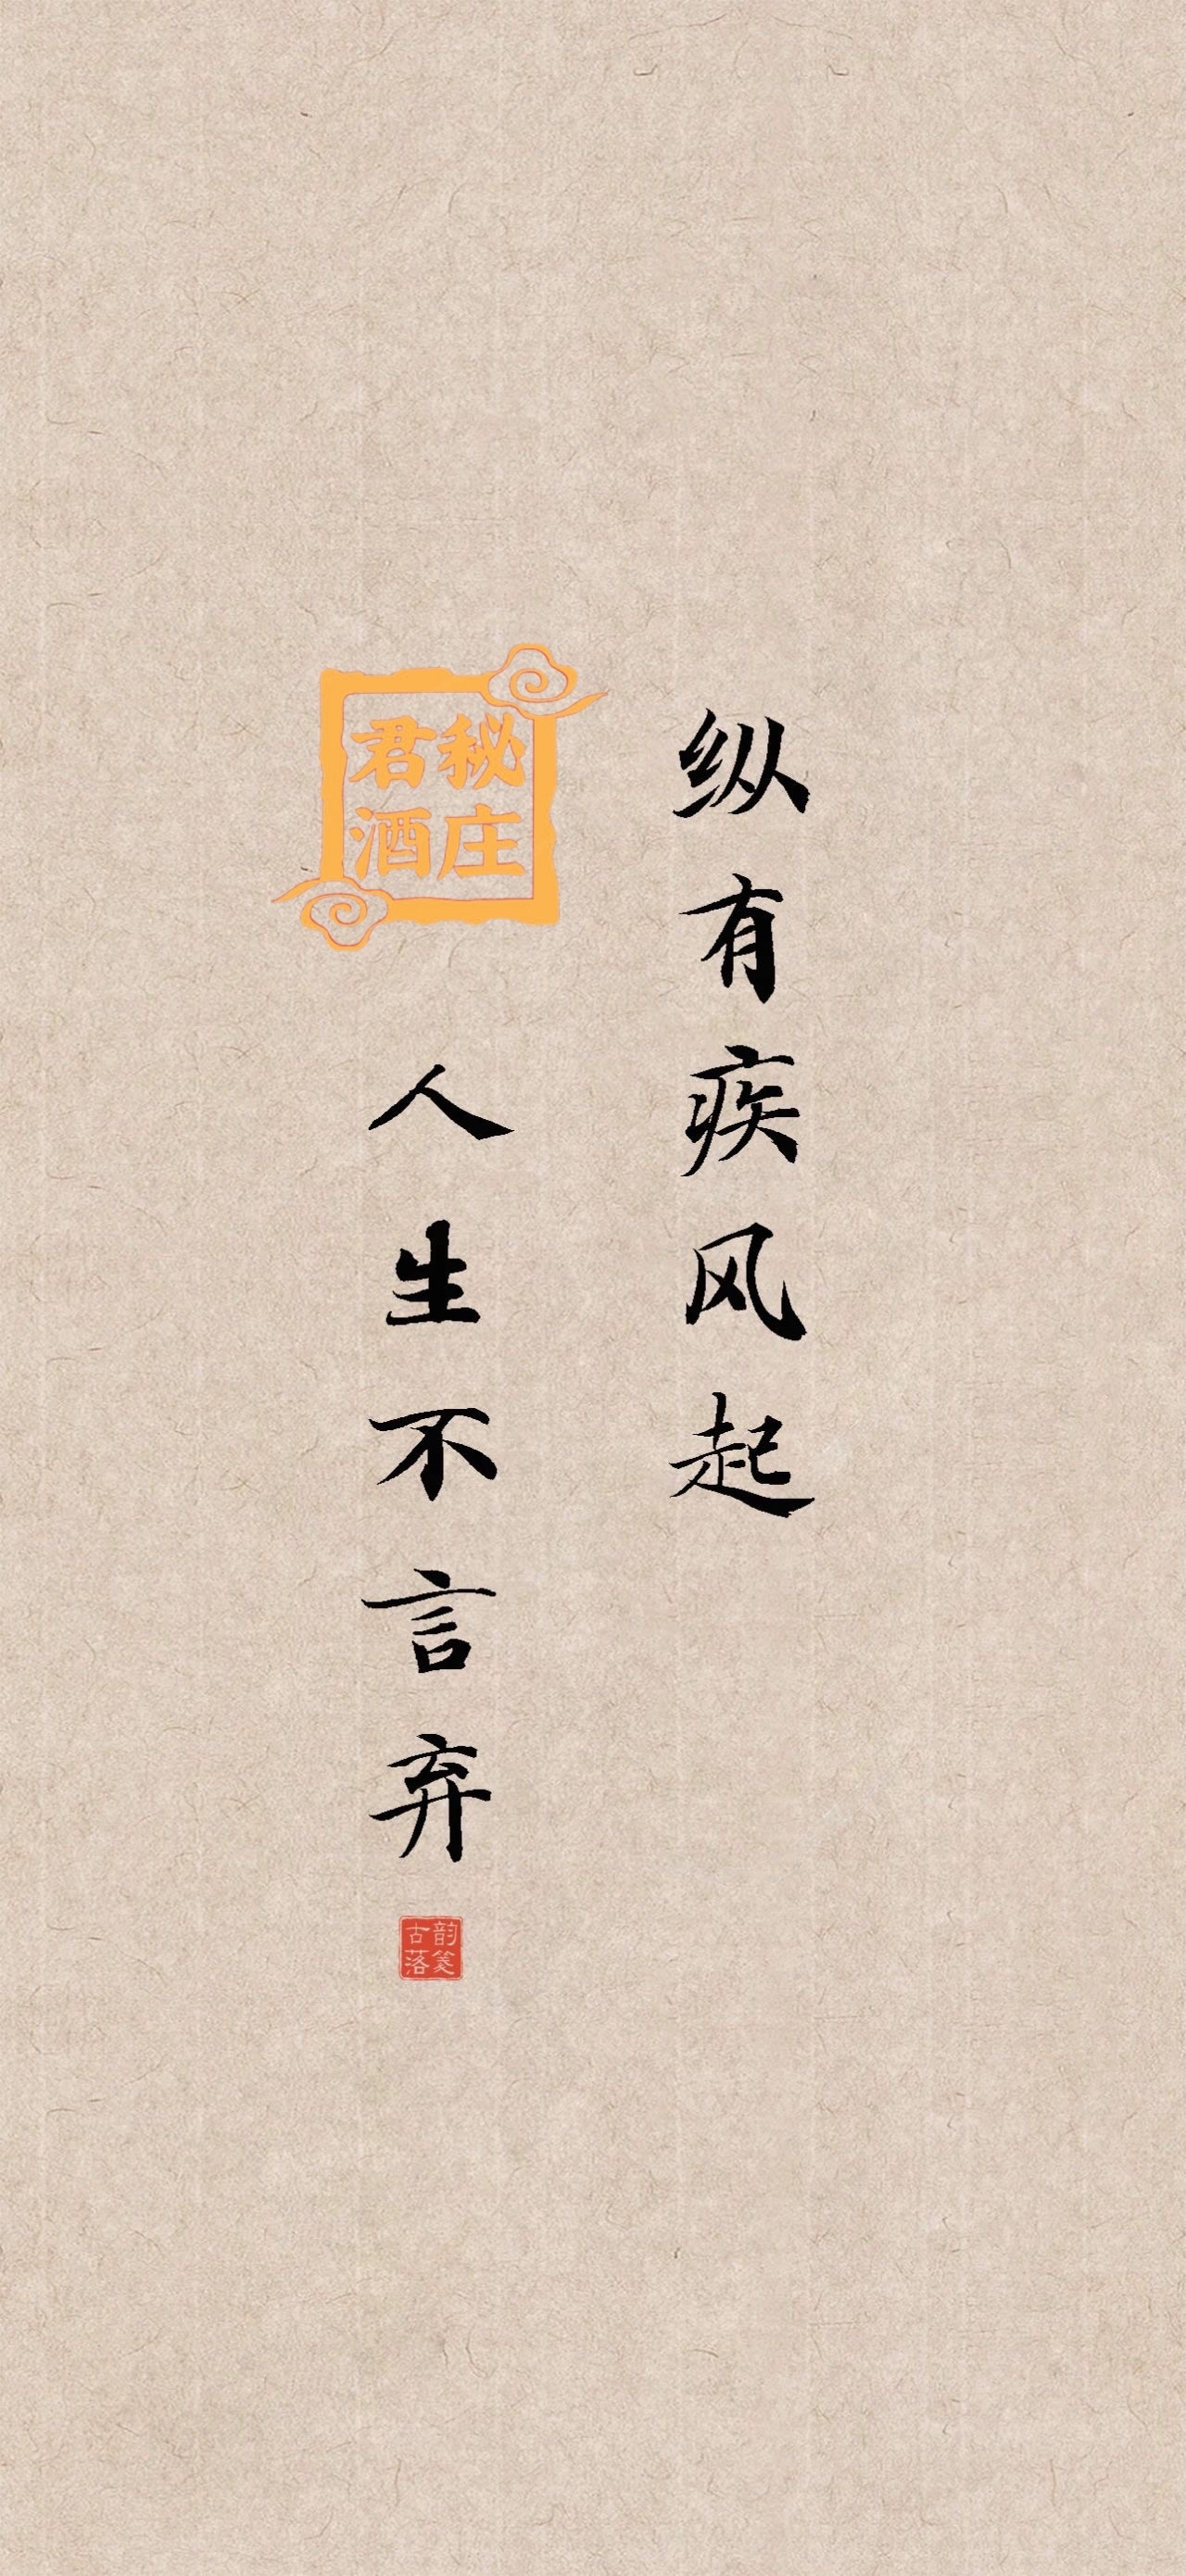 纵有疾风起
人生不言弃
君秘
酒庄
古韵
落笺